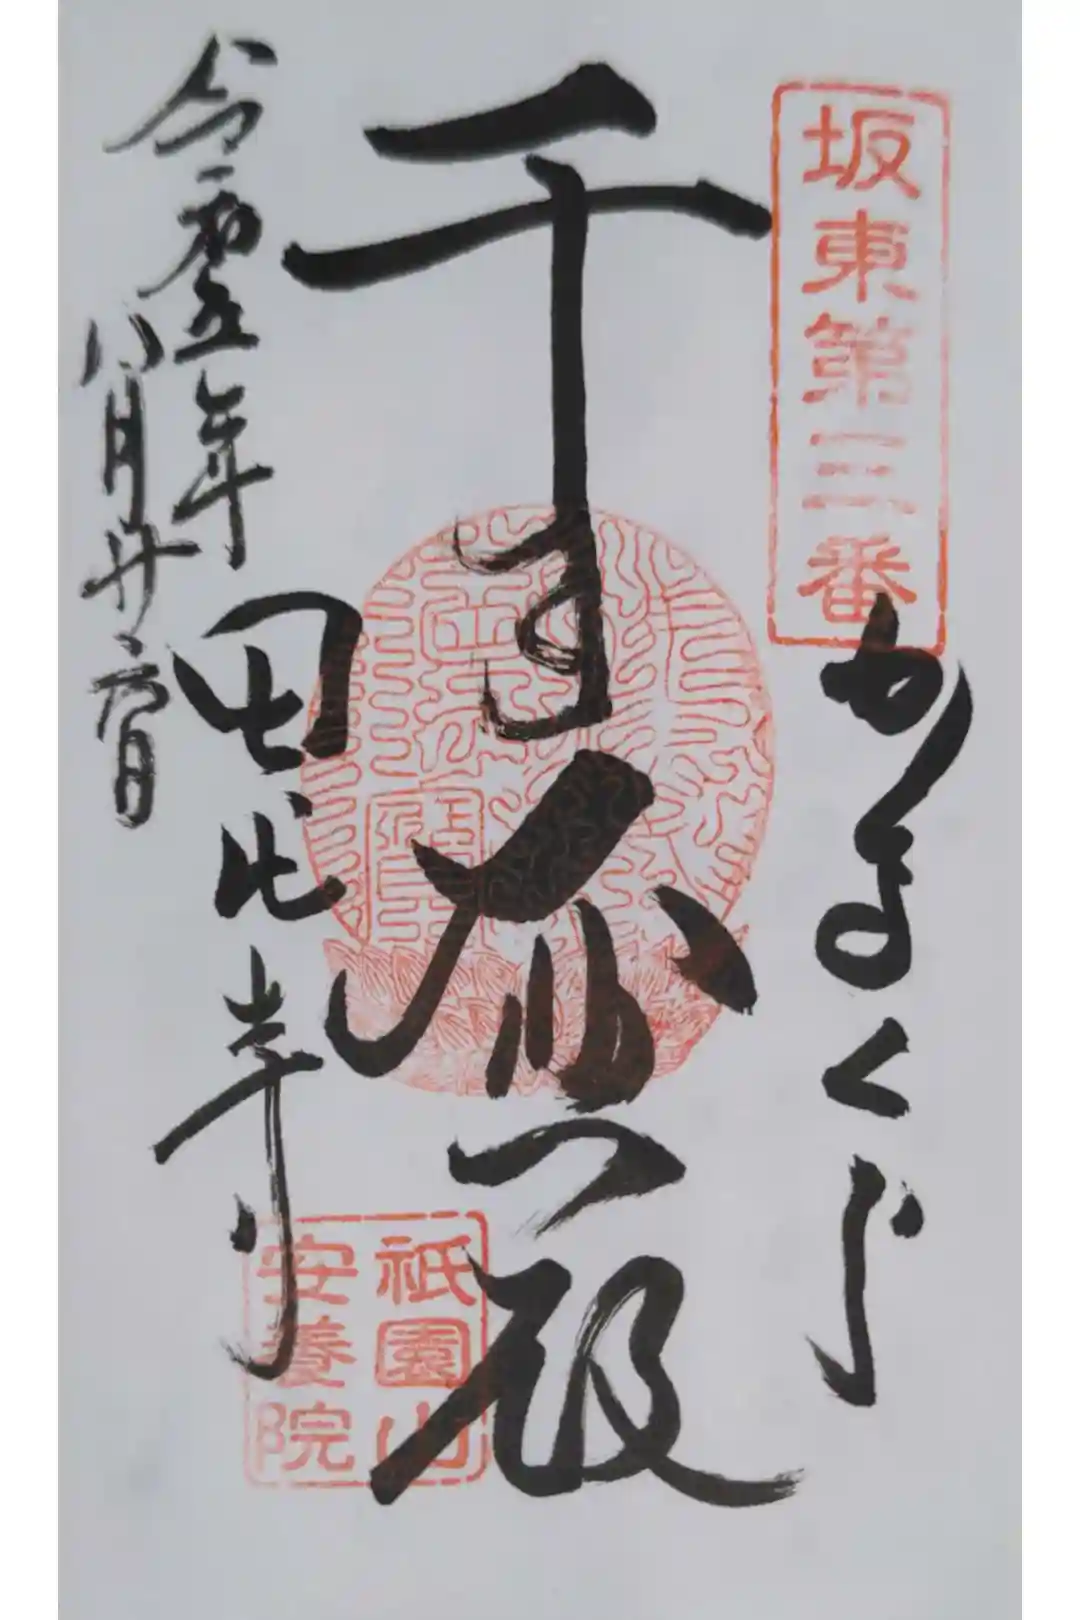 坂東第三番
かまくら
千手大悲殿
田代寺
令和五年
八月廿六日
祇園山
安養院